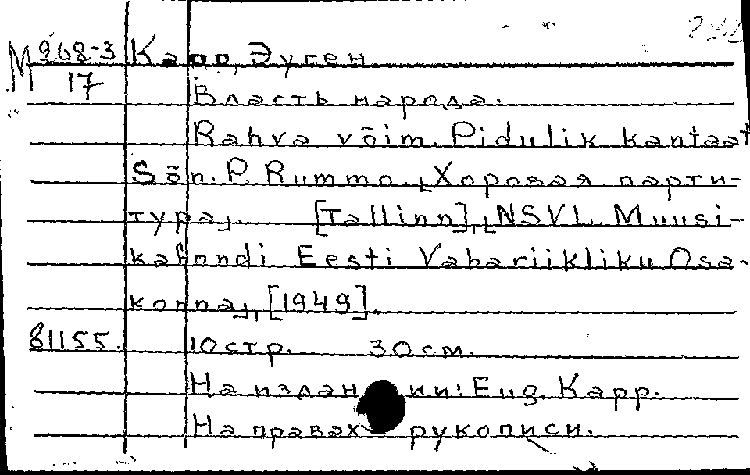 М 968-3 Капп, Эуген
17
Власть народа.
Rahva võim. Pidulik kantaat
Sõn. P. Rummo. [Хоровая парти-
тура]. [Tallinn], [NSVL Muusi-
kafondi Eesti Vabariikliku Osa-
konna], [1949].
81155. 10 стр. 30 см.
На издании: Eug. Kapp.
На правах рукописи.